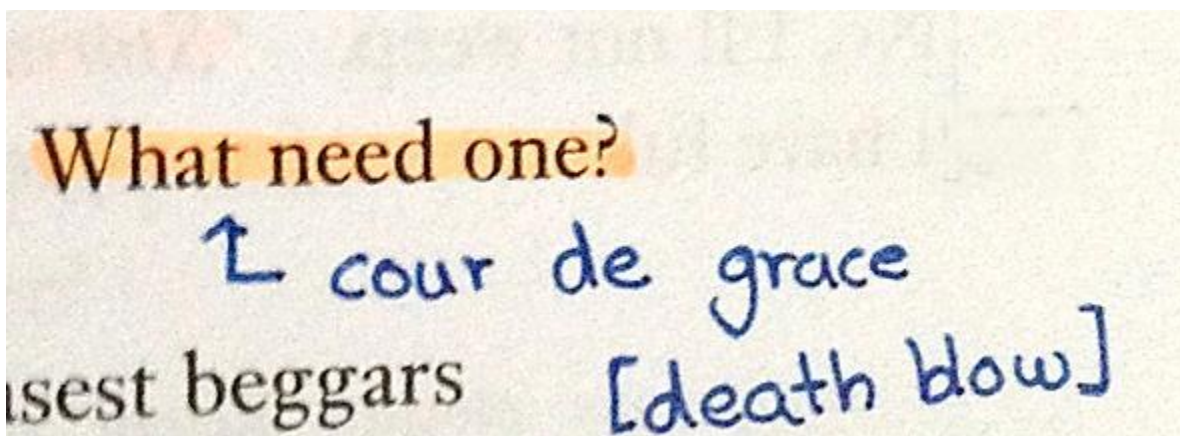 What need one?
↑ cour de grace
asest beggars
[death blow]